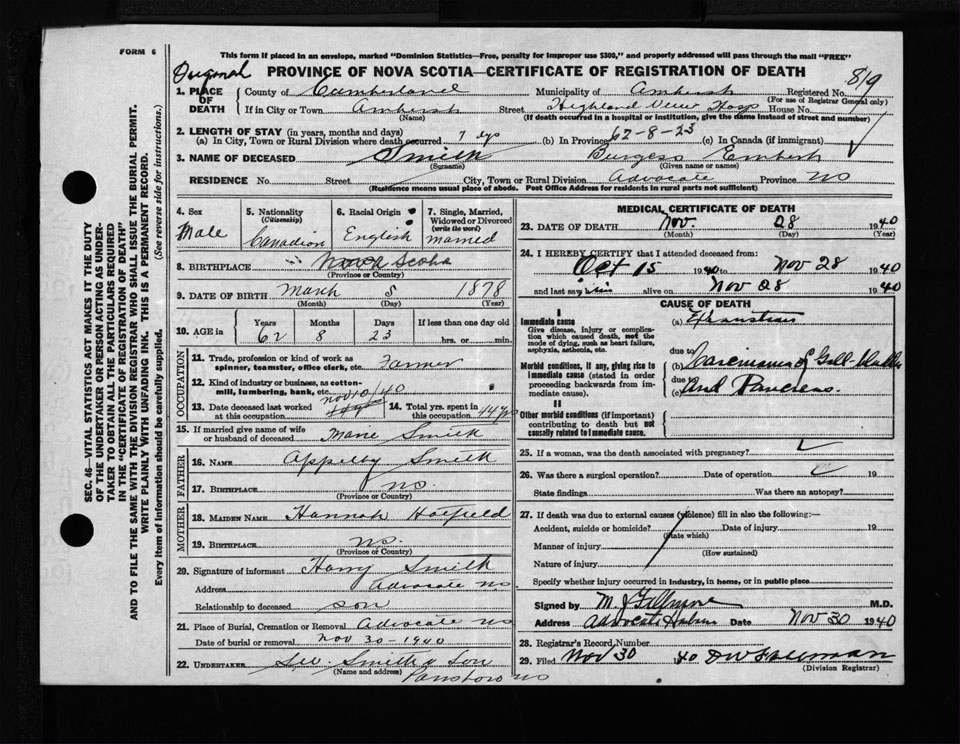 FORM 6
This form if placed in an envelope, marked "Dominion Statistics—Free, penalty for improper use $300," and properly addressed will pass through the mail "FREE"
Original PROVINCE OF NOVA SCOTIA—CERTIFICATE OF REGISTRATION OF DEATH 819
1. PLACE OF DEATH County of Cumberland Municipality of Amherst Registered No.
(For use of Registrar General only)
If in City or Town Amherst Street Highland View Hosp House No.
(Name) (If death occurred in a hospital or institution, give the name instead of street and number)
2. LENGTH OF STAY (in years, months and days)
(a) In City, Town or Rural Division where death occurred 7 dys (b) In Province 62-8-23 (c) In Canada (if immigrant)
3. NAME OF DECEASED Smith Burgess
(Surname) (Given name or names)
RESIDENCE No. Street City, Town or Rural Division Advocate Province NS
(Residence means usual place of abode. Post Office Address for residents in rural parts not sufficient)
4. Sex
Male
5. Nationality
(Citizenship)
Canadian
6. Racial Origin
English
7. Single, Married, Widowed or Divorced
(write the word)
married
8. BIRTHPLACE Nova Scotia
(Province or Country)
9. DATE OF BIRTH March 5 1878
(Month) (Day) (Year)
10. AGE in Years Months Days If less than one day old
62 8 23 hrs. or min.
OCCUPATION
11. Trade, profession or kind of work as spinner, teamster, office clerk, etc. Farmer
12. Kind of industry or business, as cotton-mill, lumbering, bank, etc.
13. Date deceased last worked at this occupation Nov 10/40
14. Total yrs. spent in this occupation 44 yrs
15. If married give name of wife or husband of deceased Marie Smith
FATHER
16. NAME Appelby Smith
17. BIRTHPLACE NS.
(Province or Country)
MOTHER
18. MAIDEN NAME Hannah Hatfield
19. BIRTHPLACE NS.
(Province or Country)
20. Signature of informant Harry Smith
Address Advocate NS
Relationship to deceased son
21. Place of Burial, Cremation or Removal Advocate NS
Date of burial or removal Nov 30-1940
22. UNDERTAKER Smith & Son
(Name and address)
Parrsboro NS
MEDICAL CERTIFICATE OF DEATH
23. DATE OF DEATH Nov. 28 1940
(Month) (Day) (Year)
24. I HEREBY CERTIFY that I attended deceased from:
Oct 15 1940 to Nov 28 1940
and last saw him alive on Nov 28 1940
CAUSE OF DEATH
I
Immediate cause
Give disease, injury or complication which caused death, not the mode of dying, such as heart failure, asphyxia, asthenia, etc.
(a) Exhaustion
due to
Morbid conditions, if any, giving rise to immediate cause (stated in order proceeding backwards from immediate cause).
(b) Carcinoma of Gall bladder
due to
(c) and Pancreas.
II
Other morbid conditions (if important) contributing to death but not causally related to immediate cause.
25. If a woman, was the death associated with pregnancy?
26. Was there a surgical operation? Date of operation 19
State findings Was there an autopsy?
27. If death was due to external causes (violence) fill in also the following:—
Accident, suicide or homicide? Date of injury 19
(State which)
Manner of injury
(How sustained)
Nature of injury
Specify whether injury occurred in industry, in home, or in public place
Signed by M J Gillmore M.D.
Address Advocate Harbour Date Nov 30 1940
28. Registrar's Record Number
29. Filed Nov 30 1940 D W Freeman
(Division Registrar)
SEC. 46—VITAL STATISTICS ACT MAKES IT THE DUTY
OF THE UNDERTAKER OR PERSON ACTING AS UNDER-
TAKER TO OBTAIN ALL THE PARTICULARS REQUIRED
IN THE "CERTIFICATE OF REGISTRATION OF DEATH"
AND TO FILE THE SAME WITH THE DIVISION REGISTRAR WHO SHALL ISSUE THE BURIAL PERMIT.
WRITE PLAINLY WITH UNFADING INK. THIS IS A PERMANENT RECORD.
Every item of information should be carefully supplied. (See reverse side for instructions.)